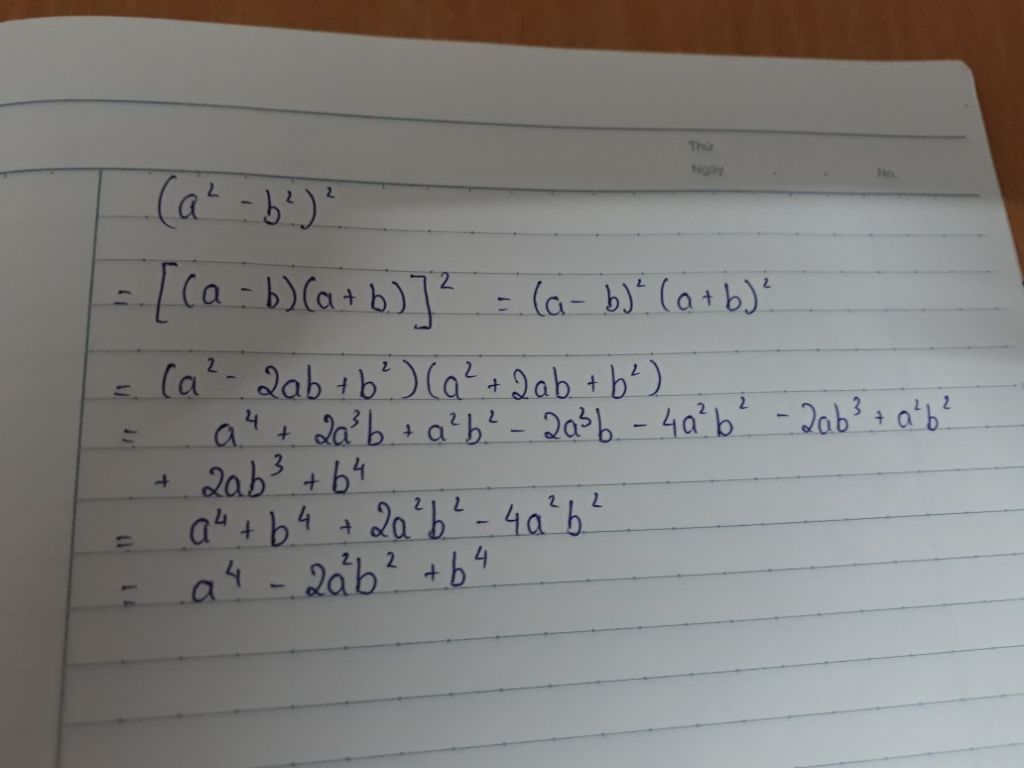 Thứ
Ngày No.
(a² - b²)²
= [(a - b)(a + b)]² = (a - b)² (a + b)²
= (a² - 2ab + b²)(a² + 2ab + b²)
= a⁴ + 2a³b + a²b² - 2a³b - 4a²b² - 2ab³ + a²b²
+ 2ab³ + b⁴
= a⁴ + b⁴ + 2a²b² - 4a²b²
= a⁴ - 2a²b² + b⁴